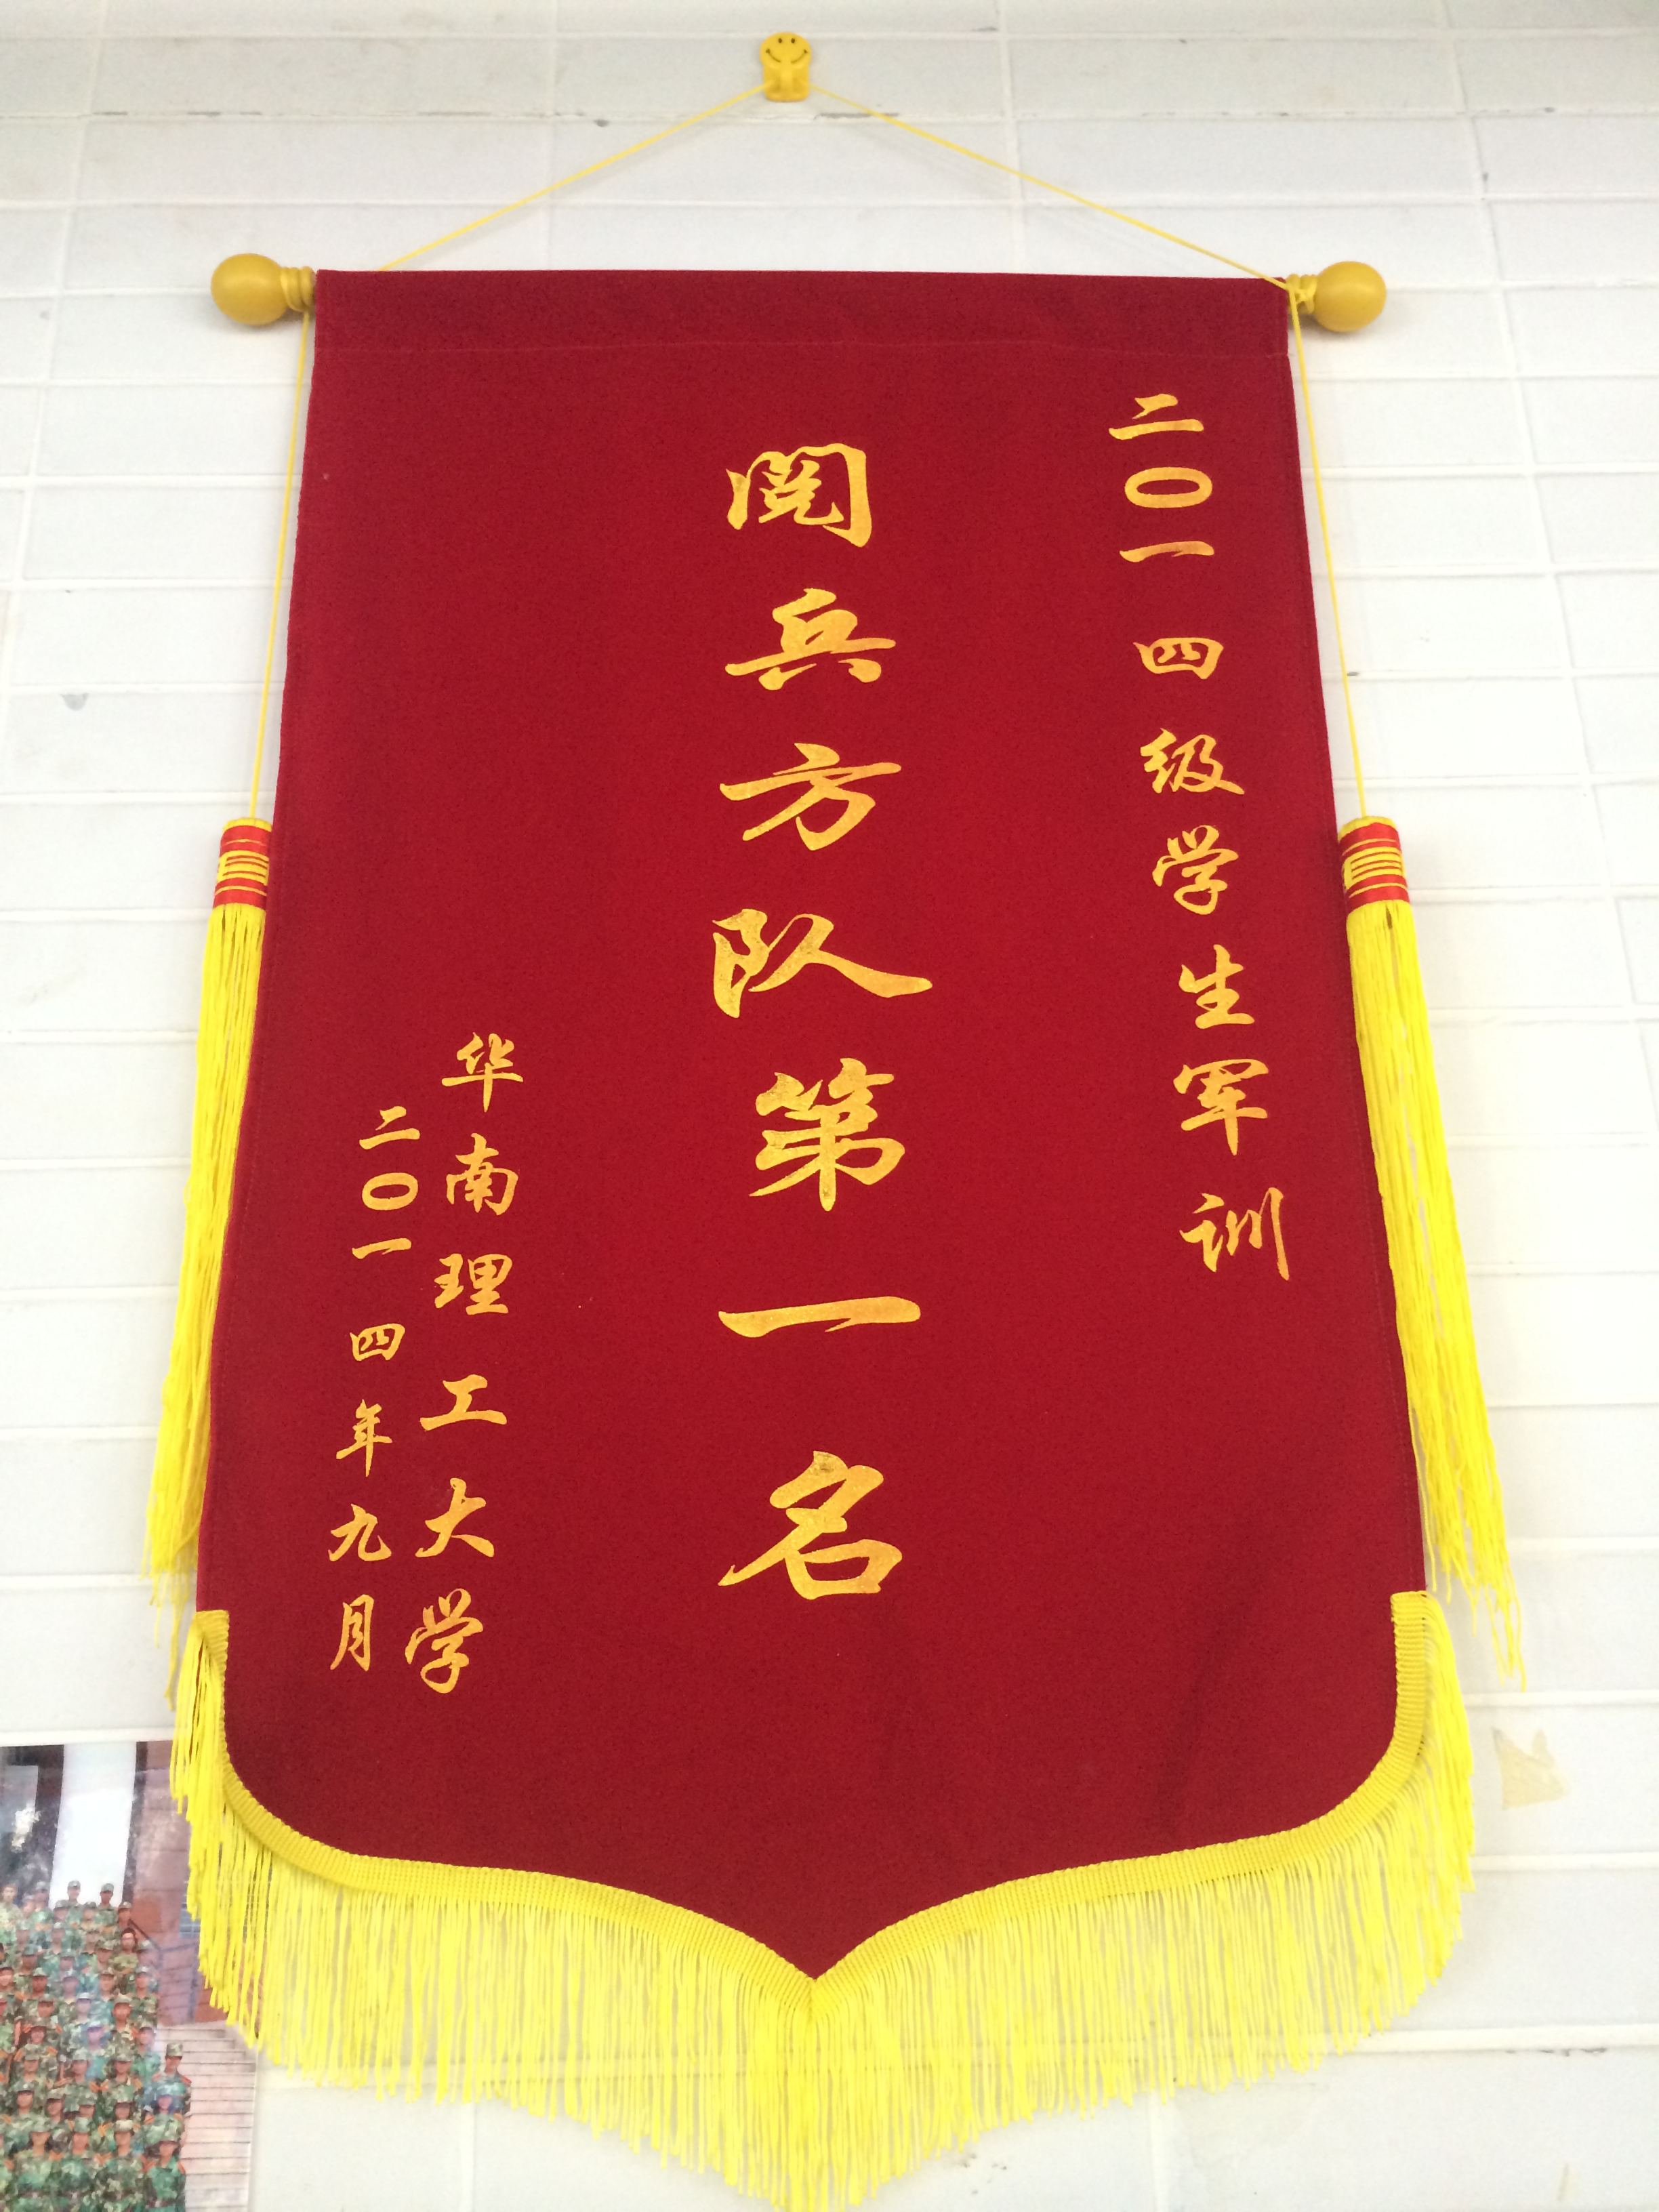 二〇一四级学生军训
阅兵方队第一名
华南理工大学
二〇一四年九月